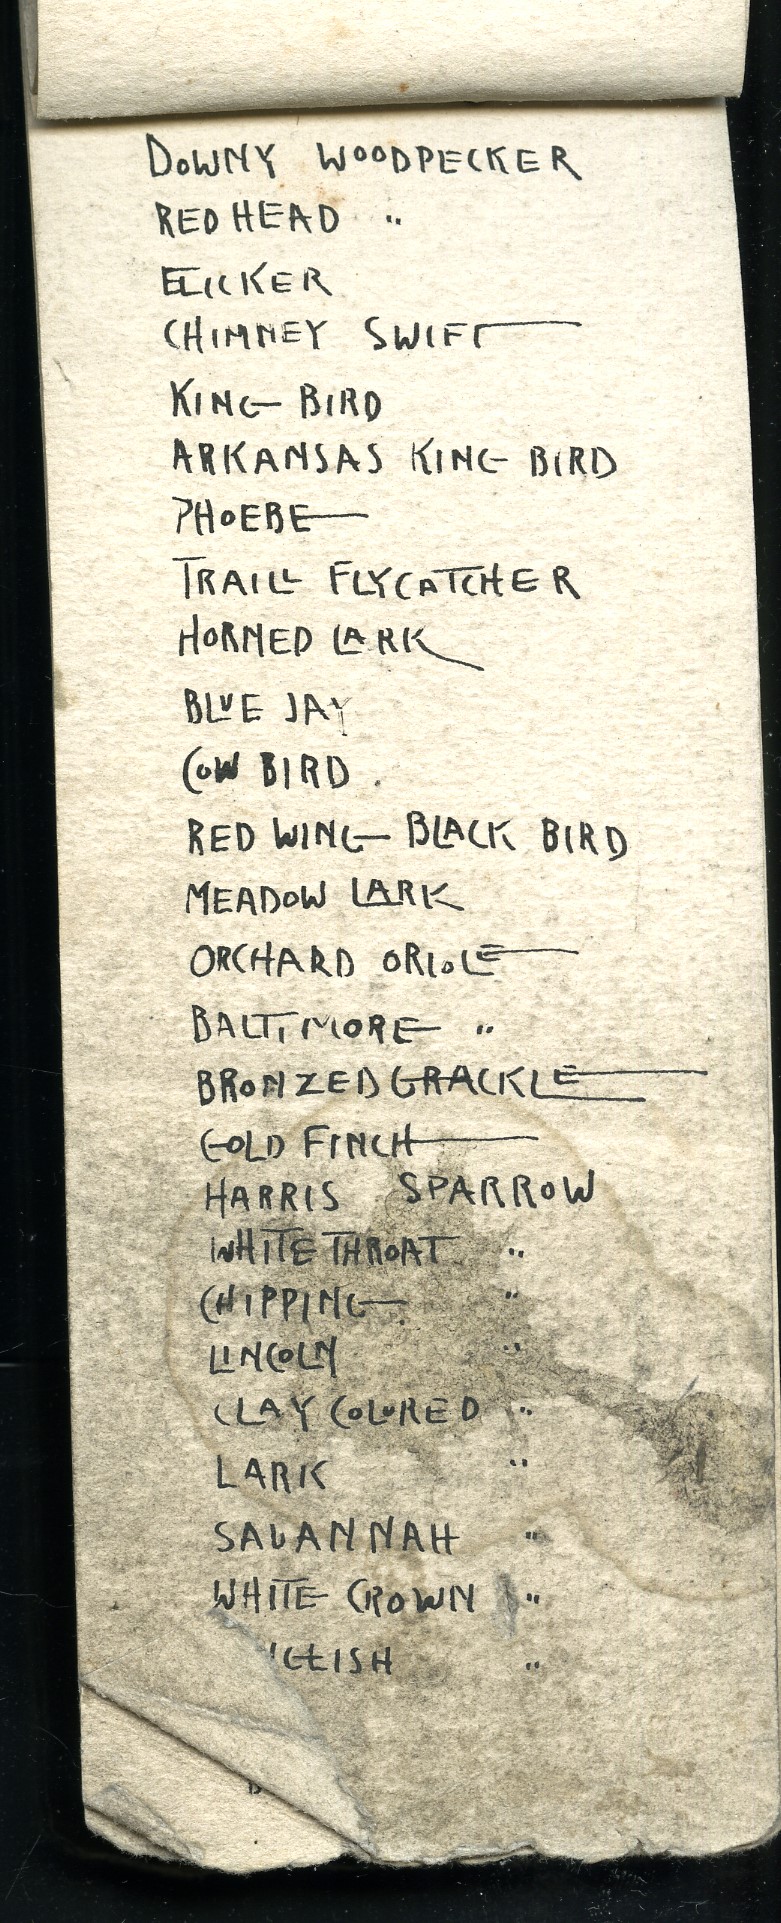 DOWNY WOODPECKER
RED HEAD "
FLICKER
CHIMNEY SWIFT
KING BIRD
ARKANSAS KING BIRD
PHOEBE
TRAILL FLYCATCHER
HORNED LARK
BLUE JAY
COW BIRD .
RED WING BLACK BIRD
MEADOW LARK
ORCHARD ORIOLE
BALTIMORE "
BRONZED GRACKLE
GOLD FINCH
HARRIS SPARROW
WHITE THROAT "
CHIPPING "
LINCOLN "
CLAY COLURED "
LARK "
SAVANNAH "
WHITE CROWN "
"